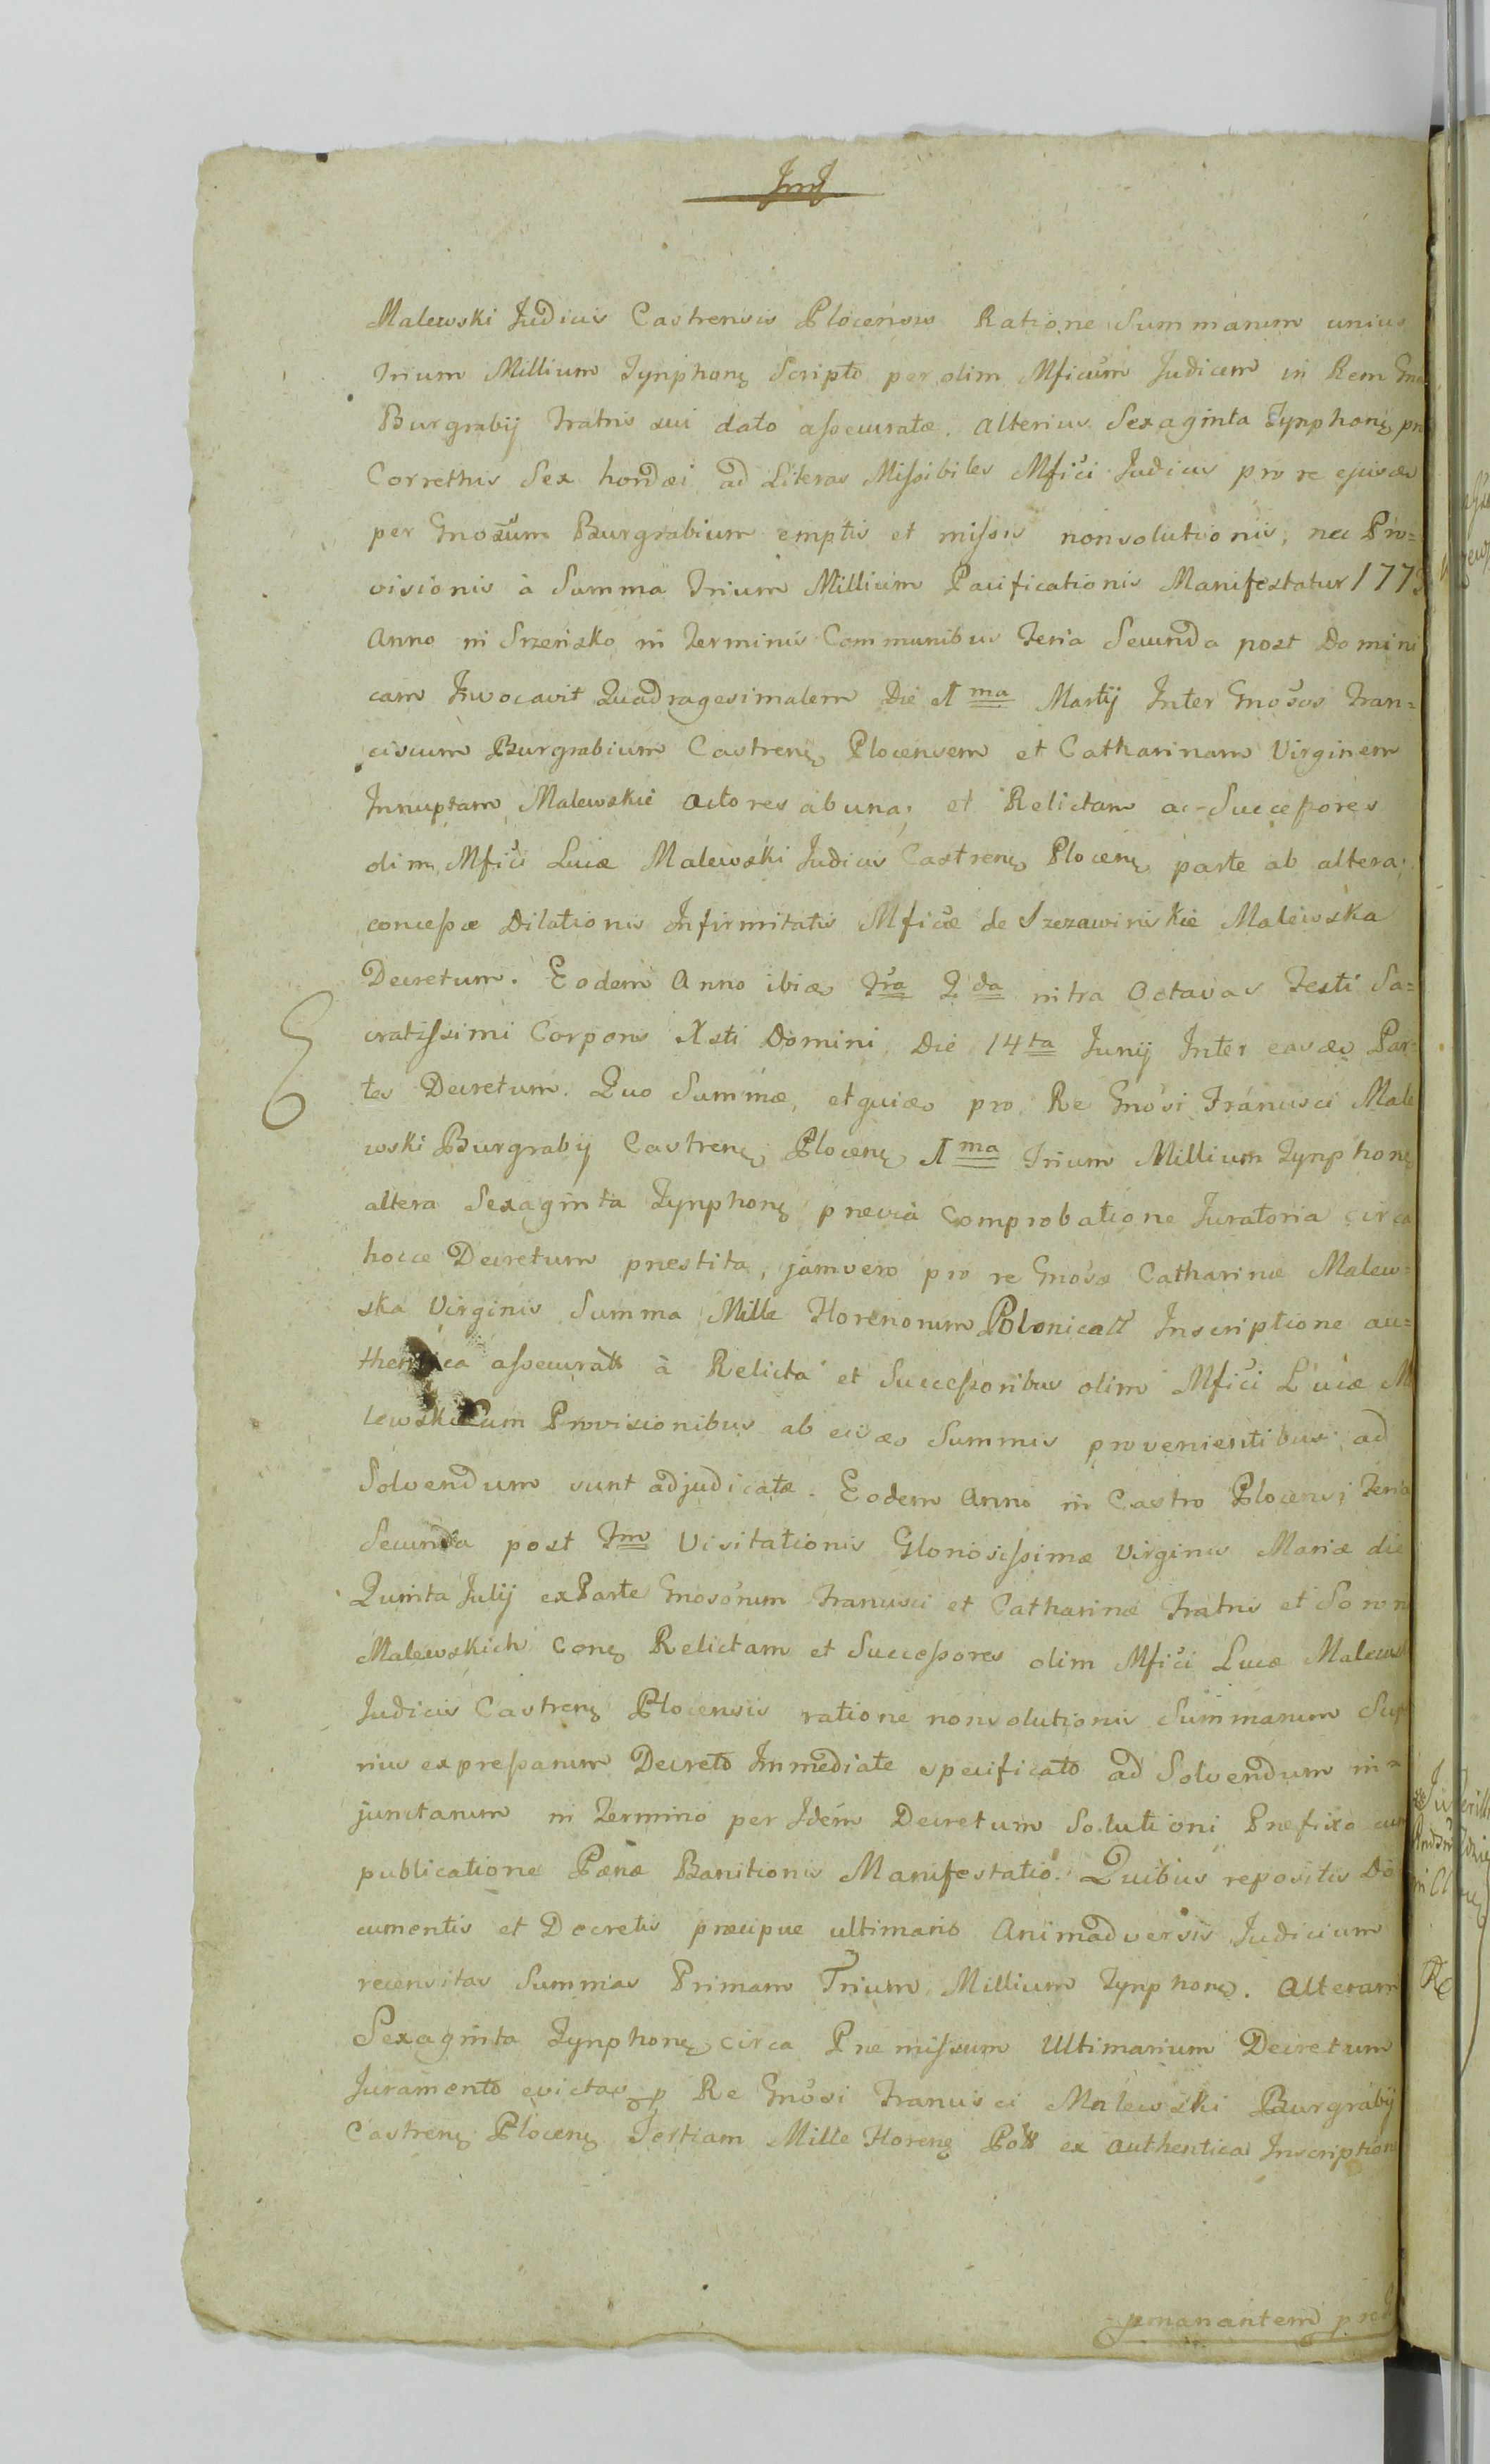 Malewski Judicis Castrensis Plocensis Ratione Summarum unius
Trium Millium Tynphonę Scripto per olim Mficum Judicem in Rem Gnos
Burgrabij Fratris sui dato assecuratæ. alterius Sexaginta Tynphonę pro
Correthis Sex hordæi ad Literas Missibiles Mfici Judicis pro re ejusdę
per Gnosum Burgrabium emptis et missis nonsolutionis, nec Pro=
visionis à Summa Trium Millium Pacificationis Manifestatur 177
Anno in Srzensko in Terminis Communibus Feria Secunda post Domini
cam Invocavit Quadragesimalem Die 1ma Martij Inter Gnosos Fran=
ciscum Burgrabium Castrenę Plocensem et Catharinam Virginem
Innuptam Malewskie actores abuna; et Relictam ac Successores
olim Mfici Lucæ Malewski Judicis Castrenę Plocenę parte ab altera;
concessæ Dilationis Infirmitatis Mficæ de Szczawinskie Malewska
Decretum. Eodem Anno ibidę Fra 2da intra Octavas Festi Sa=
cratissimi Corporis Xsti Domini Die 14ta Junij Inter easdę Par=
tes Decretum. Quo Summæ, et quidę pro Re Gnosi Francisci Male
wski Burgrabij Castrenę Plocenę 1ma Trium Millium Tynphonę
altera Sexaginta Tynphonę prævia Comprobatione Juratoria circa
hocce Decretum præstita, jamvero pro re Gnosæ Catharinæ Malew=
ska Virginis Summa Mille Florenorum Polonicall Inscriptione au=
thentica assecurall à Relicta et Successoribus olim Mfici Lucæ M
lewski Cum Provisionibus ab eisdę Summis provenientibus ad
Solvendum sunt adjudicatæ. Eodem Anno in Castro Plocensi Feria
Secunda post Fm Visitationis Gloriosissimæ Virginis Mariæ die
Quinta Julij ex Parte Gnosorum Francisci et Catharinæ Fratris et Soror
Malewskich Conę Relictam et Successores olim Mfici Lucæ Malews
Judicis Castrenę Plocensis ratione nonsolutionis Summarum Sup
rius expressarum Decreto Immediate specificato ad Solvendum in=
junctarum in Termino per Idem Decretum Solutioni Præfixo cum
publicatione Pænæ Banitionis Manifestatio. Quibus repositis Do
cumentis et Decretis præcipue ultimario Animadversis Judicium
recensitas Summas Primam Trium Millium Tynphonę. alteram
Sexaginta Tynphonę circa Præmissum Ultimarium Decretum
Juramento evictas p Re Gnosi Francisci Malewski Burgrabij
Castrenę Plocenę Tertiam Mille Florenę Poll ex authentica Inscription